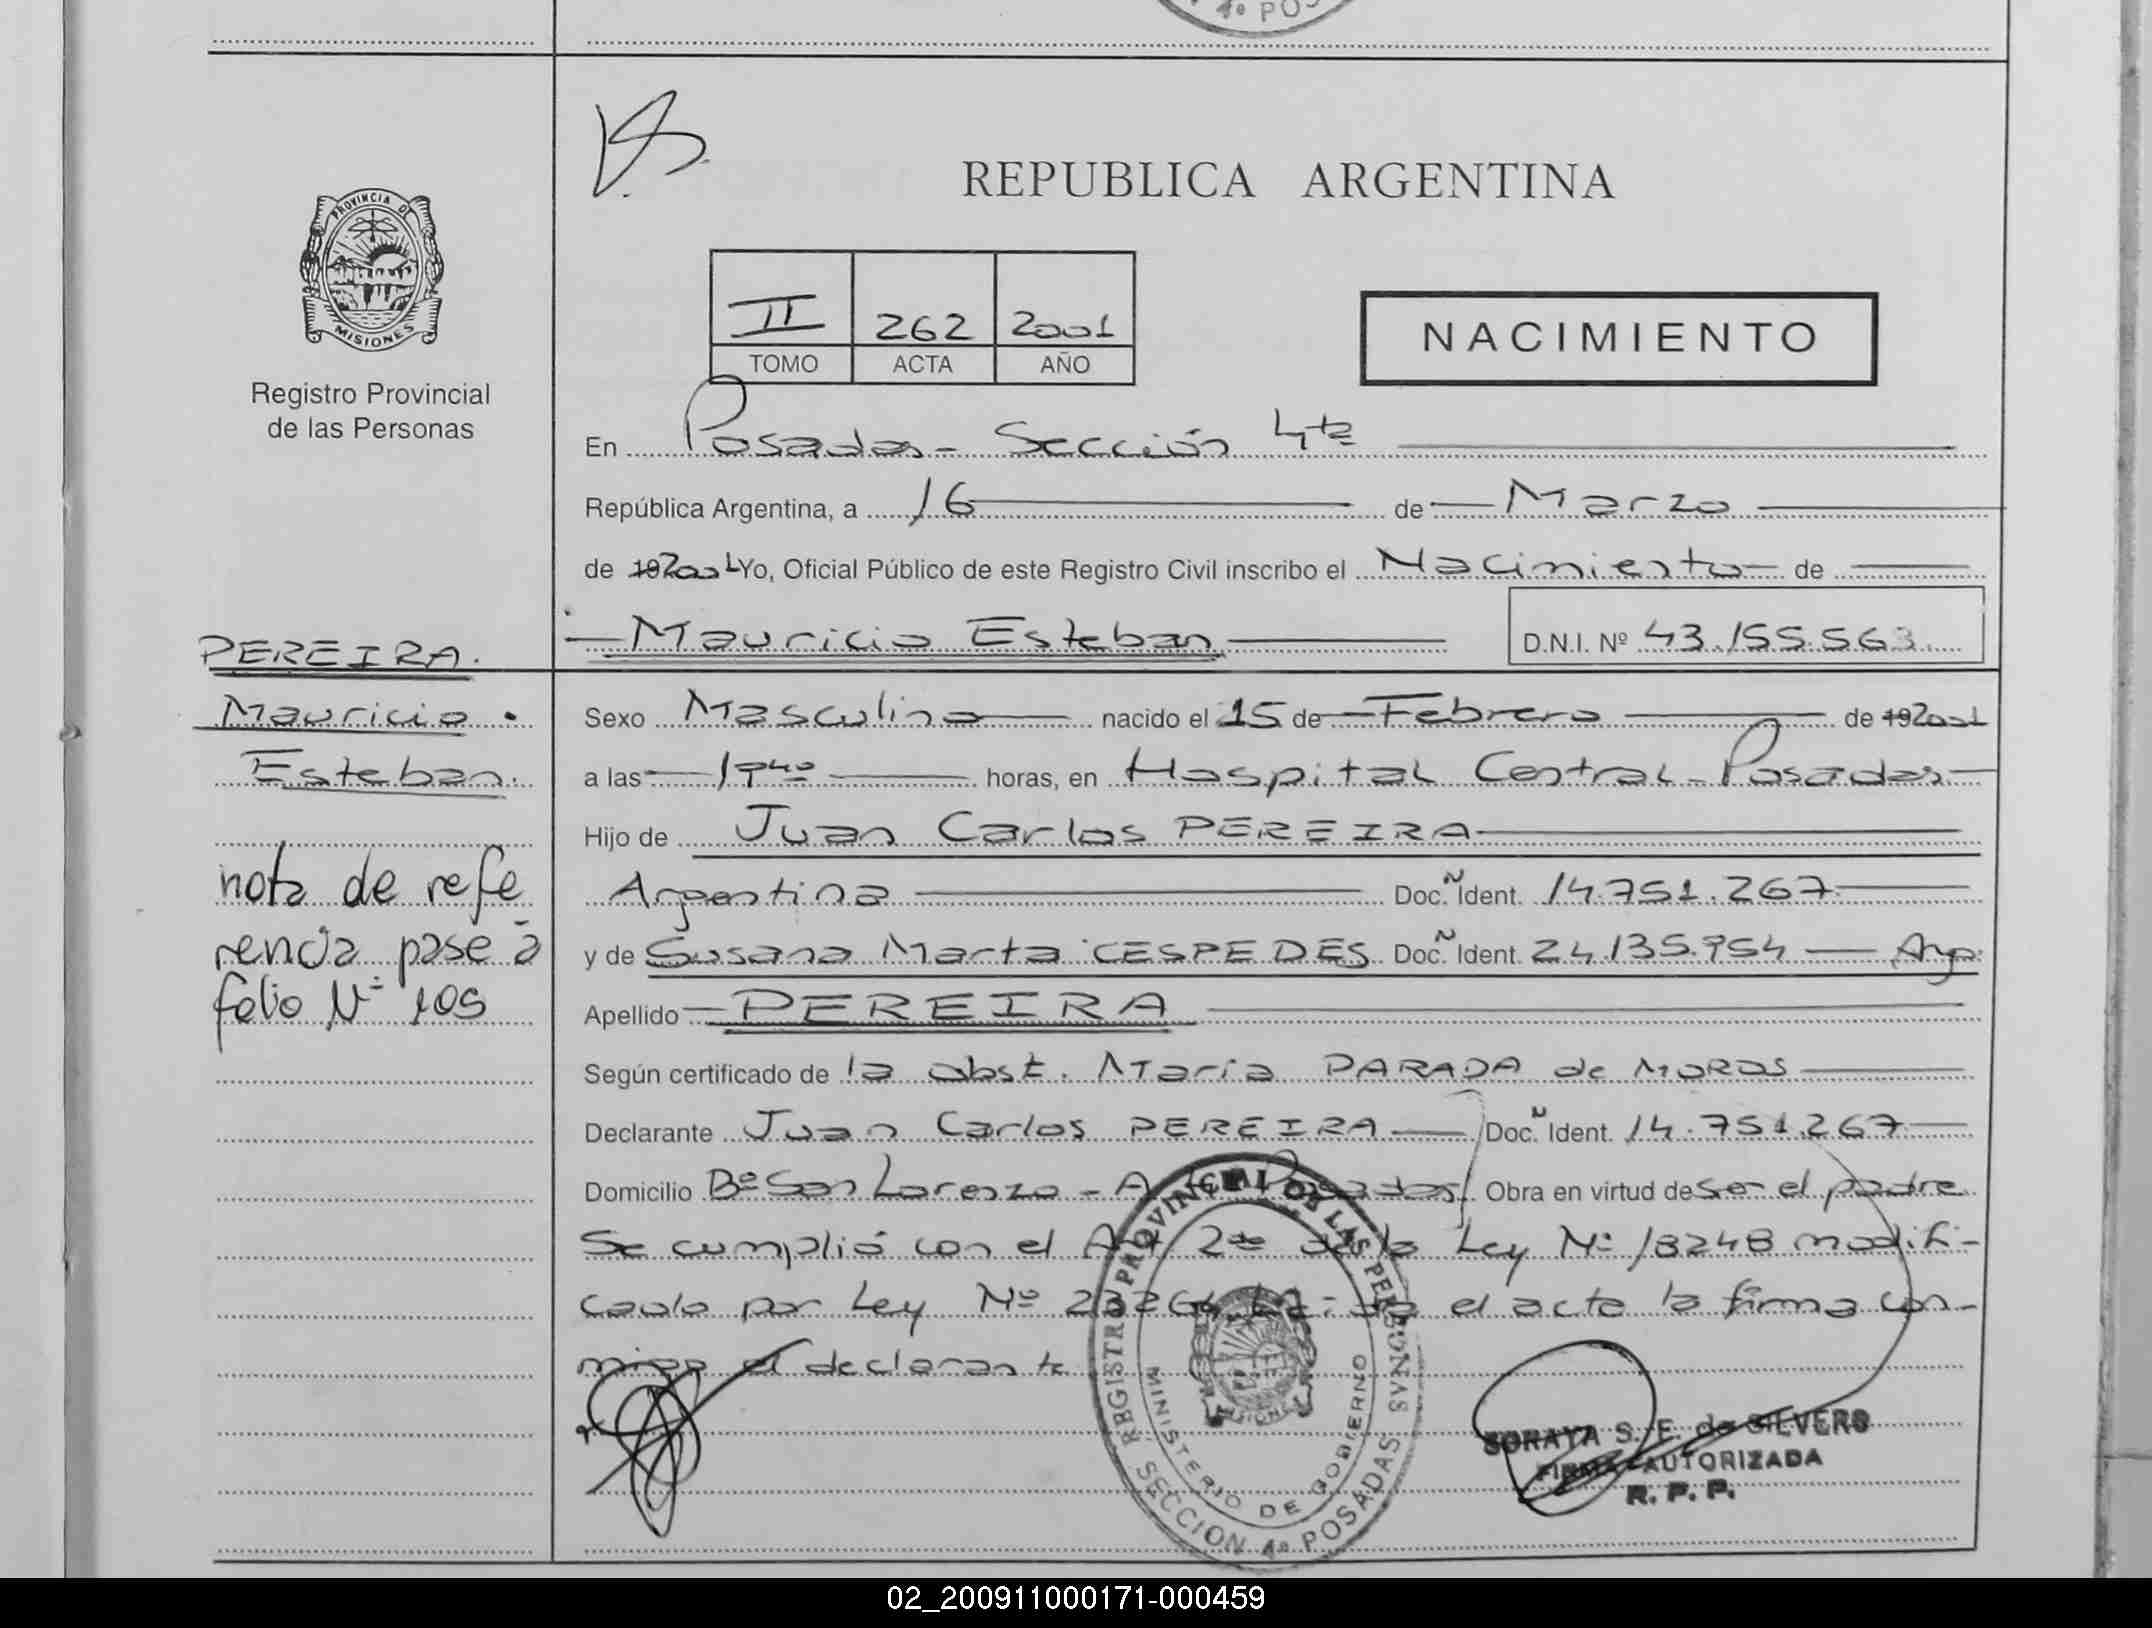 1º POS
REPUBLICA ARGENTINA
PROVINCIA DE
MISIONES
Registro Provincial
de las Personas
II 262 2001
TOMO ACTA AÑO
NACIMIENTO
En Posadas - Sección 4ta
República Argentina, a 16 de Marzo
de 192001 Yo, Oficial Público de este Registro Civil inscribo el Nacimiento de
Mauricio Esteban D.N.I. Nº 43.155.563
PEREIRA.
Mauricio
Esteban.
nota de refe
rencia pase a
folio Nº 105
Sexo Masculino nacido el 15 de Febrero de 192001
a las horas, en Hospital Central - Posadas
Hijo de Juan Carlos PEREIRA
Argentina Doc. Ident. 14.751.267
y de Susana Marta CESPEDES Doc. Ident. 24.135.954 Arg.
Apellido PEREIRA
Según certificado de la obst. María PARADA de MOROS
Declarante Juan Carlos PEREIRA Doc. Ident. 14.751.267
Domicilio Bº San Lorenzo - Posadas Obra en virtud de ser el padre
Se cumplió con el Art 2do de la Ley Nº 18248 modifi-
cada por Ley Nº 23264 Leida el acta la firma con-
migo el declarante
REGISTRO PROVINCIAL DE LAS PERSONAS
MINISTERIO DE GOBIERNO
SECCION 4º POSADAS
SORAYA S. E. de SILVERO
FIRMA AUTORIZADA
R. P. P.
02_200911000171-000459